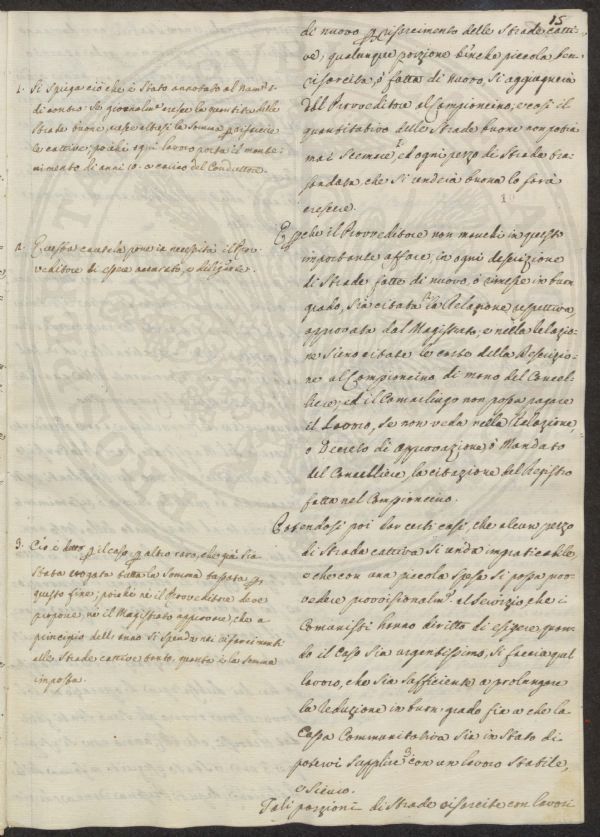 15
di nuovo, o risarcimento delle Strade catti-
ve; qualunque porzione benche piccola ben
risarcita, o fatta di nuovo, si aggiugnerà
dal Proveditore al Campioncino; e così il
quantitativo delle Strade buone non potrà
mai scemare 1. ed ogni pezzo di Strada
che si renderà buona lo farà
crescere.
E perche il Proveditore non manchi in questo
importante affare, in ogni descrizione
di Strade fatte di nuovo, o rimesse in buon
grado, sia citata 2. la Relazione respettiva
approvata dal Magistrato; e nella Relazio-
ne sieno citate le carte della Descrizio-
ne al Campioncino di mano del Cancel-
liere; ed il Camarlingo non possa pagare
il Lavoro, se non veda nella Relazione
o Decreto di approvazione, o Mandato
del Cancelliere, la citazione del Registro
fatta nel Campioncino.
Potendosi poi dar certi casi, che alcun pezzo
di Strada cattiva si renda impraticabile,
e che con una piccola spesa si possa prov-
vedere provvisionalm.e al servizio, che i
Comunisti hanno diritto di esigere, quan-
do il caso sia urgentissimo, si faccia quel
lavoro, che sia sufficiente a prolungare
la reduzione in buon grado fin a che la
Cassa Communitativa sia in stato di
potervi supplire 3. con un lavoro stabile,
e sicuro.
Tali porzioni di Strade risarcite con lavori
1. Si spiega ciò che è stato annotato al Num.o
di contro. Se giornalm.e cresce la quantità delle
Strade buone, cresce altresì la somma p risarcire
le cattive; poichè ogni lavoro porta il mante-
nimento di anni 10. a carico del Conduttore.
2. E questa cautela pone in necessità il Pro-
veditore di essere accurato, e diligente.
3. Ciò è detto p il caso p altro raro, che già sia
stata erogata tutta la somma tassata p
questo fine; poichè nè il Proveditore deve
proporre, nè il Magistrato approvare, che a
principio dell'anno si spenda nei risarcimenti
alle Strade cattive tanto, quanto è la somma
imposta.